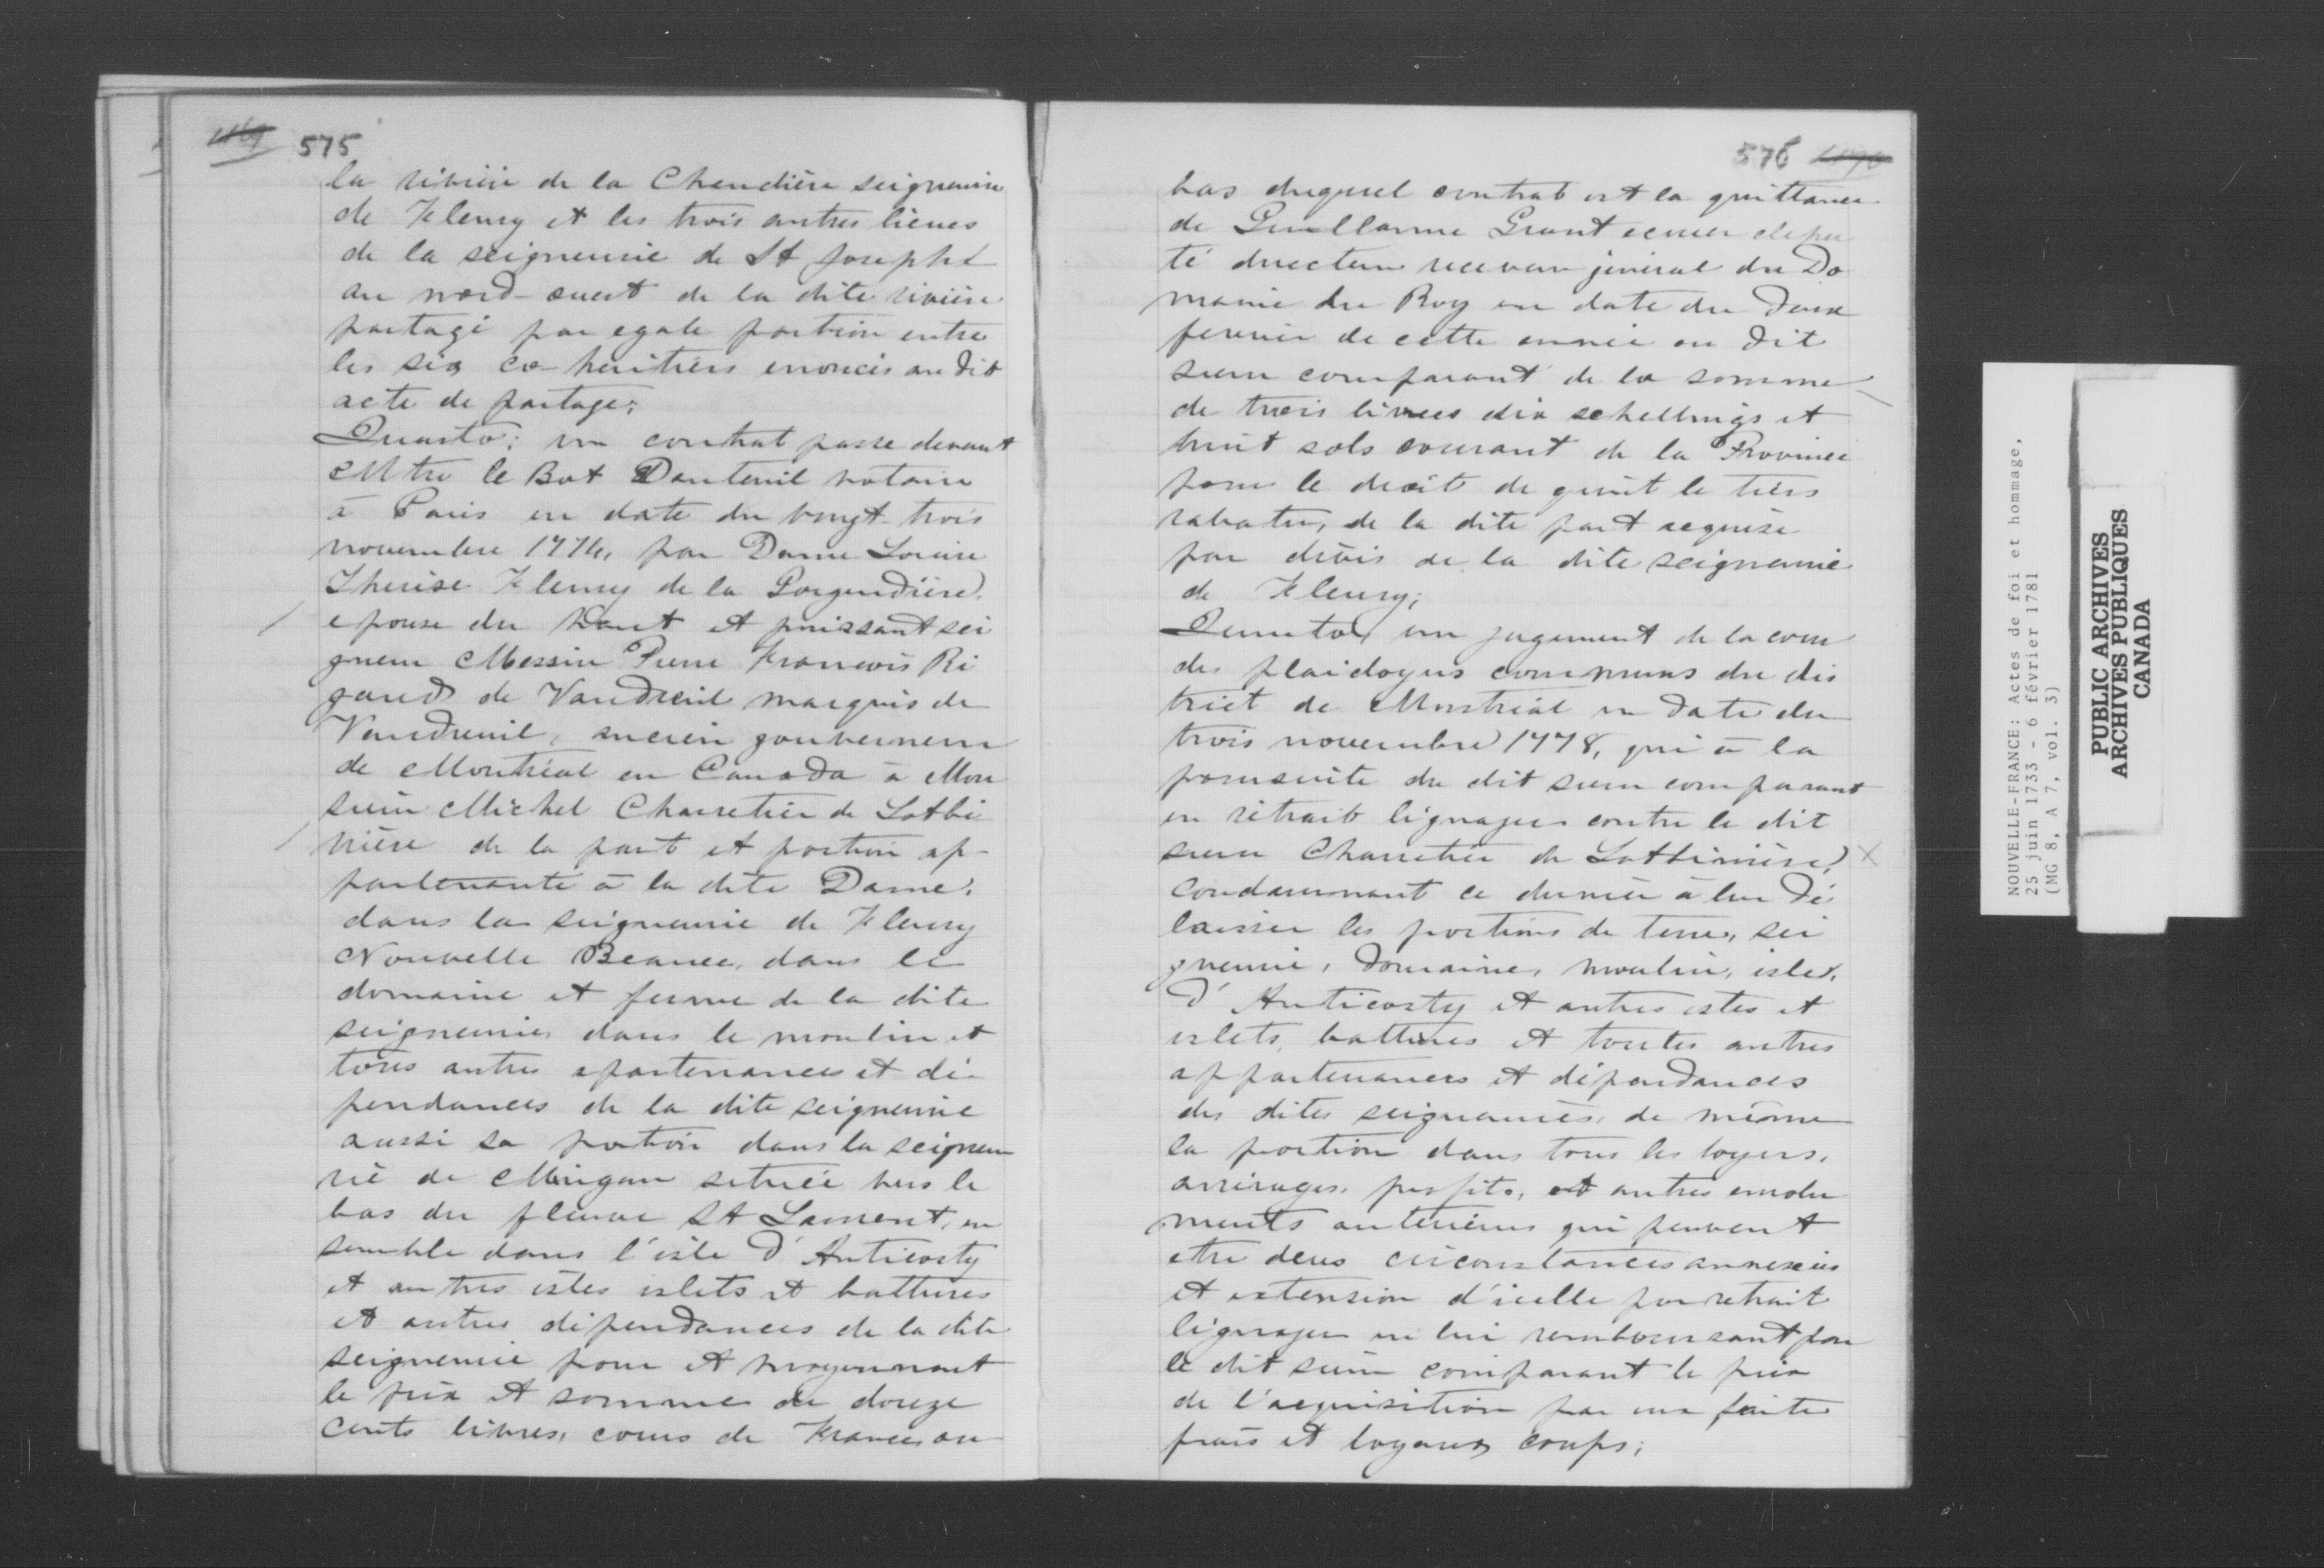 575
la rivière de la Chendière seigneurie
de Fleury et les trois autres lieues
de la seigneurie de St Joseph
au nord-ouest de la dite rivière
partagé par egale portion entre
les six co-heritiers enoncés au dit
acte de partage;
Quarto: un contrat passe devant
Mtre le Bot Dauteuil notaire
à Paris en date du vingt-trois
novembre 1774, par Dame Louise
Therèse Fleury de la Gorgendière,
epouse du haut et puissant sei
gneur Messire Pierre Francois Ri
gaud de Vaudreuil marquis de
Vaudreuil, ancien gouverneur
de Montréal en Canada à Mon
sieur Michel Charretier de Lotbi
nière de la part et portion ap-
partenante à la dite Dame,
dans la seigneurie de Fleury
Nouvelle Beauce, dans le
domaine et ferme de la dite
seigneurie, dans le moulin et
tous autres apartenances et dé-
pendances de la dite seigneurie
aussi sa portion dans la seigneu
rie de Mingan située vers le
bas du fleuve St Laurent, en
semble dans l'isle d'Anticosty
et autres isles islets et battures
et autres dépendances de la dite
seigneurie pour et moyennant
le prix et somme de douze
cents livres, cours de France, au
576
bas duquel contrat est la quittance
de Guillaume Grant ecuier depu
té directeur receveur jénéral du Do
maine du Roy en date du deux
fevrier de cette année au dit
sieur comparant de la somme
de trois livres dix schellings et
huit sols courant de la Province
pour le droit de quint le tiers
rabatu, de la dite part acquise
par divis de la dite seigneurie
de Fleury;
Quinto, un jugement de la cour
des plaidoyers communs du dis
trict de Montréal en date du
trois novembre 1778, qui à la
poursuite du dit sieur comparant
en retrait lignager contre le dit
sieur Charretier de Lotbinière, X
condamnant ce dernier à lui dé
laisser les portions de terre, sei
gneurie, domaine, moulin, isle,
d'Anticosty et autres isles et
islets, battures et toutes autres
appartenances et dépendances
des dites seigneuries, de même
la portion dans tous les loyers,
arrérages, profits, et autres emolu
ments anterieurs qui peuvent
etre deus circonstances annexes
et extension d'icelle par retrait
lignager en lui remboursant par
le dit sieur comparant le prix
de l'acquisition par lui faite
frais et loyaux coups;
NOUVELLE-FRANCE: Actes de foi et hommage,
25 juin 1733 - 6 février 1781
(MG 8, A 7, vol. 3)
PUBLIC ARCHIVES
ARCHIVES PUBLIQUES
CANADA